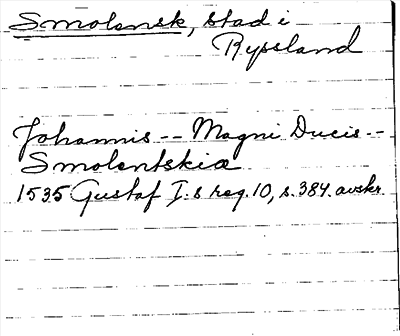 Smolensk, stad i
Ryssland
Johannis -- Magni Ducis --
Smolentskiæ
1535 Gustaf I:s reg. 10, s. 384. avskr.